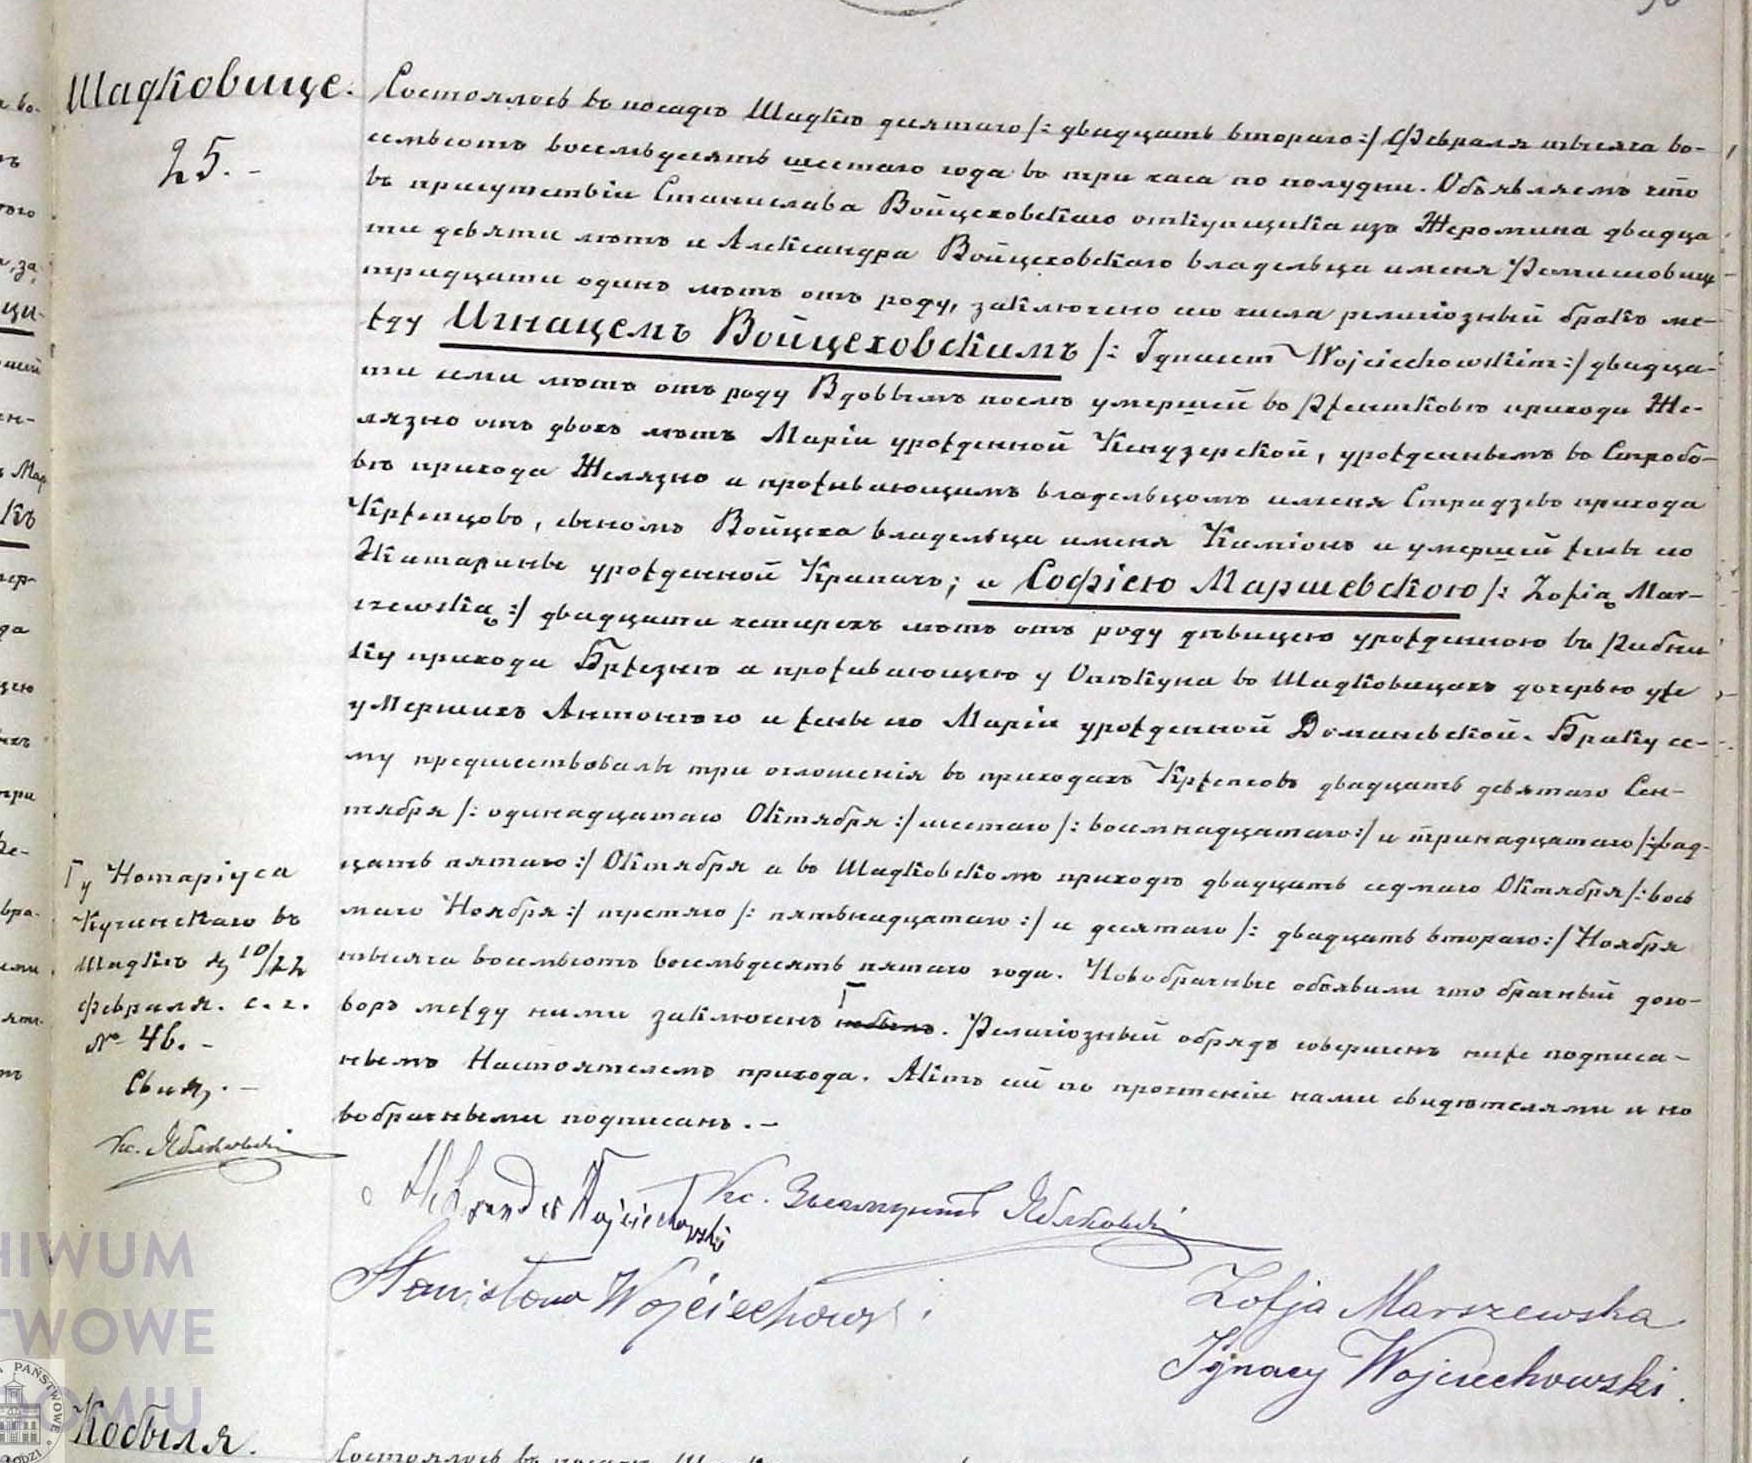 Шадковице.
25.-
Состоялось въ посадѣ Шадкѣ десятаго /: двадцать втораго :/ Февраля тысяча во-
семьсотъ восемьдесятъ шестаго года въ три часа по полудни. Объявляемъ что
въ присутствіи Станислава Войцеховскаго откупщика изъ Жеромина двадца
ти девяти лѣтъ и Александра Войцеховскаго владельца имѣня
тридцати одинъ лѣтъ отъ роду, заключено сего числа религіозный бракъ ме-
жду Игнацемъ Войцеховскимъ /: Ignacem Wojciechowskim :/ двадца-
ти семи лѣтъ отъ роду Вдовымъ послѣ умершей въ прихода Же-
лязно отъ двохъ лѣтъ Маріи урожденной Кендзерской, урожденнымъ въ Стробо-
вѣ прихода Желязно и проживающимъ владельцомъ имѣня Стридзевъ прихода
Кржепцовъ, сыномъ Войцеха владельца имѣня Каміонъ и умершей жены его
Катаринь урожденной Крапачъ; и Софіею Маршевскою /: Zofią Mar-
szewską :/ двадцати четирехъ лѣтъ отъ роду дѣвицею урожденною въ Рибни
ку прихода Бржезню и проживающею у Опѣкуна въ Шадковицахъ дочерью уже
умершихъ Антонѣго и жены его Маріи урожденной Доманевской. Браку се-
му предшествовали три оглошенія въ приходахъ Кржепсовъ двадцать девятаго Сен-
тября /: одинадцатаго Октября :/ шестаго /: восмнадцатаго :/ и тринадцатаго /: двад-
цать пятаго :/ Октября и въ Шадковскомъ приходѣ двадцать седмаго Октября /: вось
маго Ноября :/ третяго /: пятьнадцатаго :/ и десятаго /: двадцать втораго :/ Ноября
тысяча восемьсотъ восемьдесятъ пятаго года. Новобрачные объявили что брачный дого-
воръ между ними заключенъ небылъ. Религіозный обрядъ совершенъ ниже подписа-
нымъ Настоятелемъ прихода. Актъ сей по прочтеніи нами свидѣтелями и но
вобрачными подписанъ.-
у Нотаріуса
Кучинскаго въ
Шадкѣ д 10/22
Февраля. с. г.
№ 46.-
Кс. Яблковскі
Aleksander Wojciechowski
Кс. Зыгмунтъ Яблковскі
Stanisław Wojciechowski
Zofja Marszewska
Ignacy Wojciechowski.
Кобыля.
Состоялось въ посадѣ